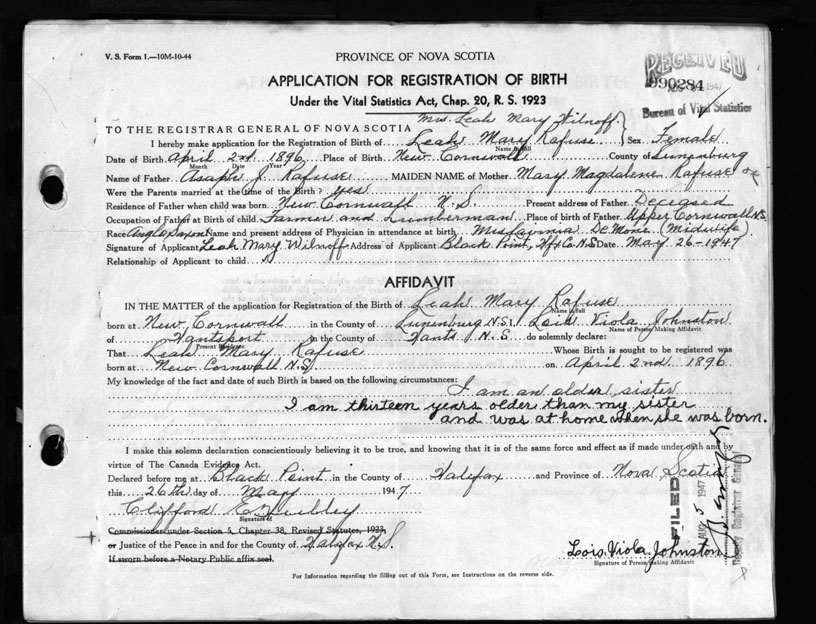 V. S. Form 1.—10M-10-44
PROVINCE OF NOVA SCOTIA
RECEIVED
990284
1947
Bureau of Vital Statistics
APPLICATION FOR REGISTRATION OF BIRTH
Under the Vital Statistics Act, Chap. 20, R. S. 1923
Mrs. Leah Mary Wilnoff
TO THE REGISTRAR GENERAL OF NOVA SCOTIA
I hereby make application for the Registration of Birth of Leah Mary Rafuse Sex Female
Name in full
Date of Birth April 2nd 1896 Place of Birth New Cornwall County of Lunenburg
Month Date Year
Name of Father Asaph J. Rafuse MAIDEN NAME of Mother Mary Magdalene Rafuse
Were the Parents married at the time of the Birth? yes
Residence of Father when child was born New Cornwall N.S. Present address of Father Deceased
Occupation of Father at Birth of child Farmer and Lumberman Place of birth of Father Upper Cornwall N.S.
Race Anglo Saxon Name and present address of Physician in attendance at birth DeMone (Midwife)
Signature of Applicant Leah Mary Wilnoff Address of Applicant Black Point, Hfx Co. N.S. Date May 26-1947
Relationship of Applicant to child
AFFIDAVIT
IN THE MATTER of the application for Registration of the Birth of Leah Mary Rafuse
Name in full
born at New Cornwall in the County of Lunenburg N.S. I, Lois Viola Johnston
Name of Person Making Affidavit
of Hantsport in the County of Hants N.S. do solemnly declare:
Present Residence
That Leah Mary Rafuse Whose Birth is sought to be registered was
born at New Cornwall N.S. on April 2nd 1896
My knowledge of the fact and date of such Birth is based on the following circumstances: I am an older sister
I am thirteen years older than my sister
and was at home when she was born.
I make this solemn declaration conscientiously believing it to be true, and knowing that it is of the same force and effect as if made under oath and by
virtue of The Canada Evidence Act.
Declared before me at Black Point in the County of Halifax and Province of Nova Scotia
this 26th day of May 1947
Clifford E.
Signature of
Commissioner under Section 5, Chapter 38, Revised Statutes, 1923,
or Justice of the Peace in and for the County of Halifax N.S.
If sworn before a Notary Public affix seal.
FILED
AUG 5 1947
Deputy Registrar General
Lois Viola Johnston
Signature of Person Making Affidavit
For Information regarding the filling out of this Form, see Instructions on the reverse side.